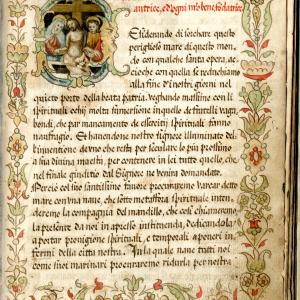 autrice, e d'ogni n'ro benefattore.
Desiderando di solchare questo
periglioso mare di questo mon,
do con qualche santa opera, ac,
cioche con quella se redusciamo
alla fine d'nostri giorni nel
quieto porto della beata patria, vegbando massime con li
spirituali occhij molta sumersione inquelo de fratelli vaga,
bondi, che par mancamento di esercitij spirituali fanno
naufragio. Et havendone nostro signore illuminato del
l'inventione d'uno che resta per seculare le piu prossimo
a sua divina maestà, per contenere in lei tutto quello, che
nel finale giuditio dal Signore ne venira domandato.
Mercie col suo santissimo favore procuraremo varcar detto
mare con una nave, che sotto metaffora spirituale inten,
deremo la compagnia del mandillo, che così chiameremo
la presente da noi in apresso instituenda, dedicandola a
portar provigione spirituali, e temporali a poveri in,
fermi della citta nostra. In la quale nave tutti noi
come suoi marinari procuraremo ridurla per nostra